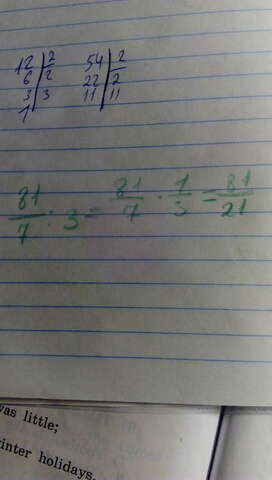 12 | 2 54 | 2
6 | 2 22 | 2
3 | 3 11 | 11
1
81/7 : 3 = 81/7 · 1/3 = 81/21
was little;
inter holidays.